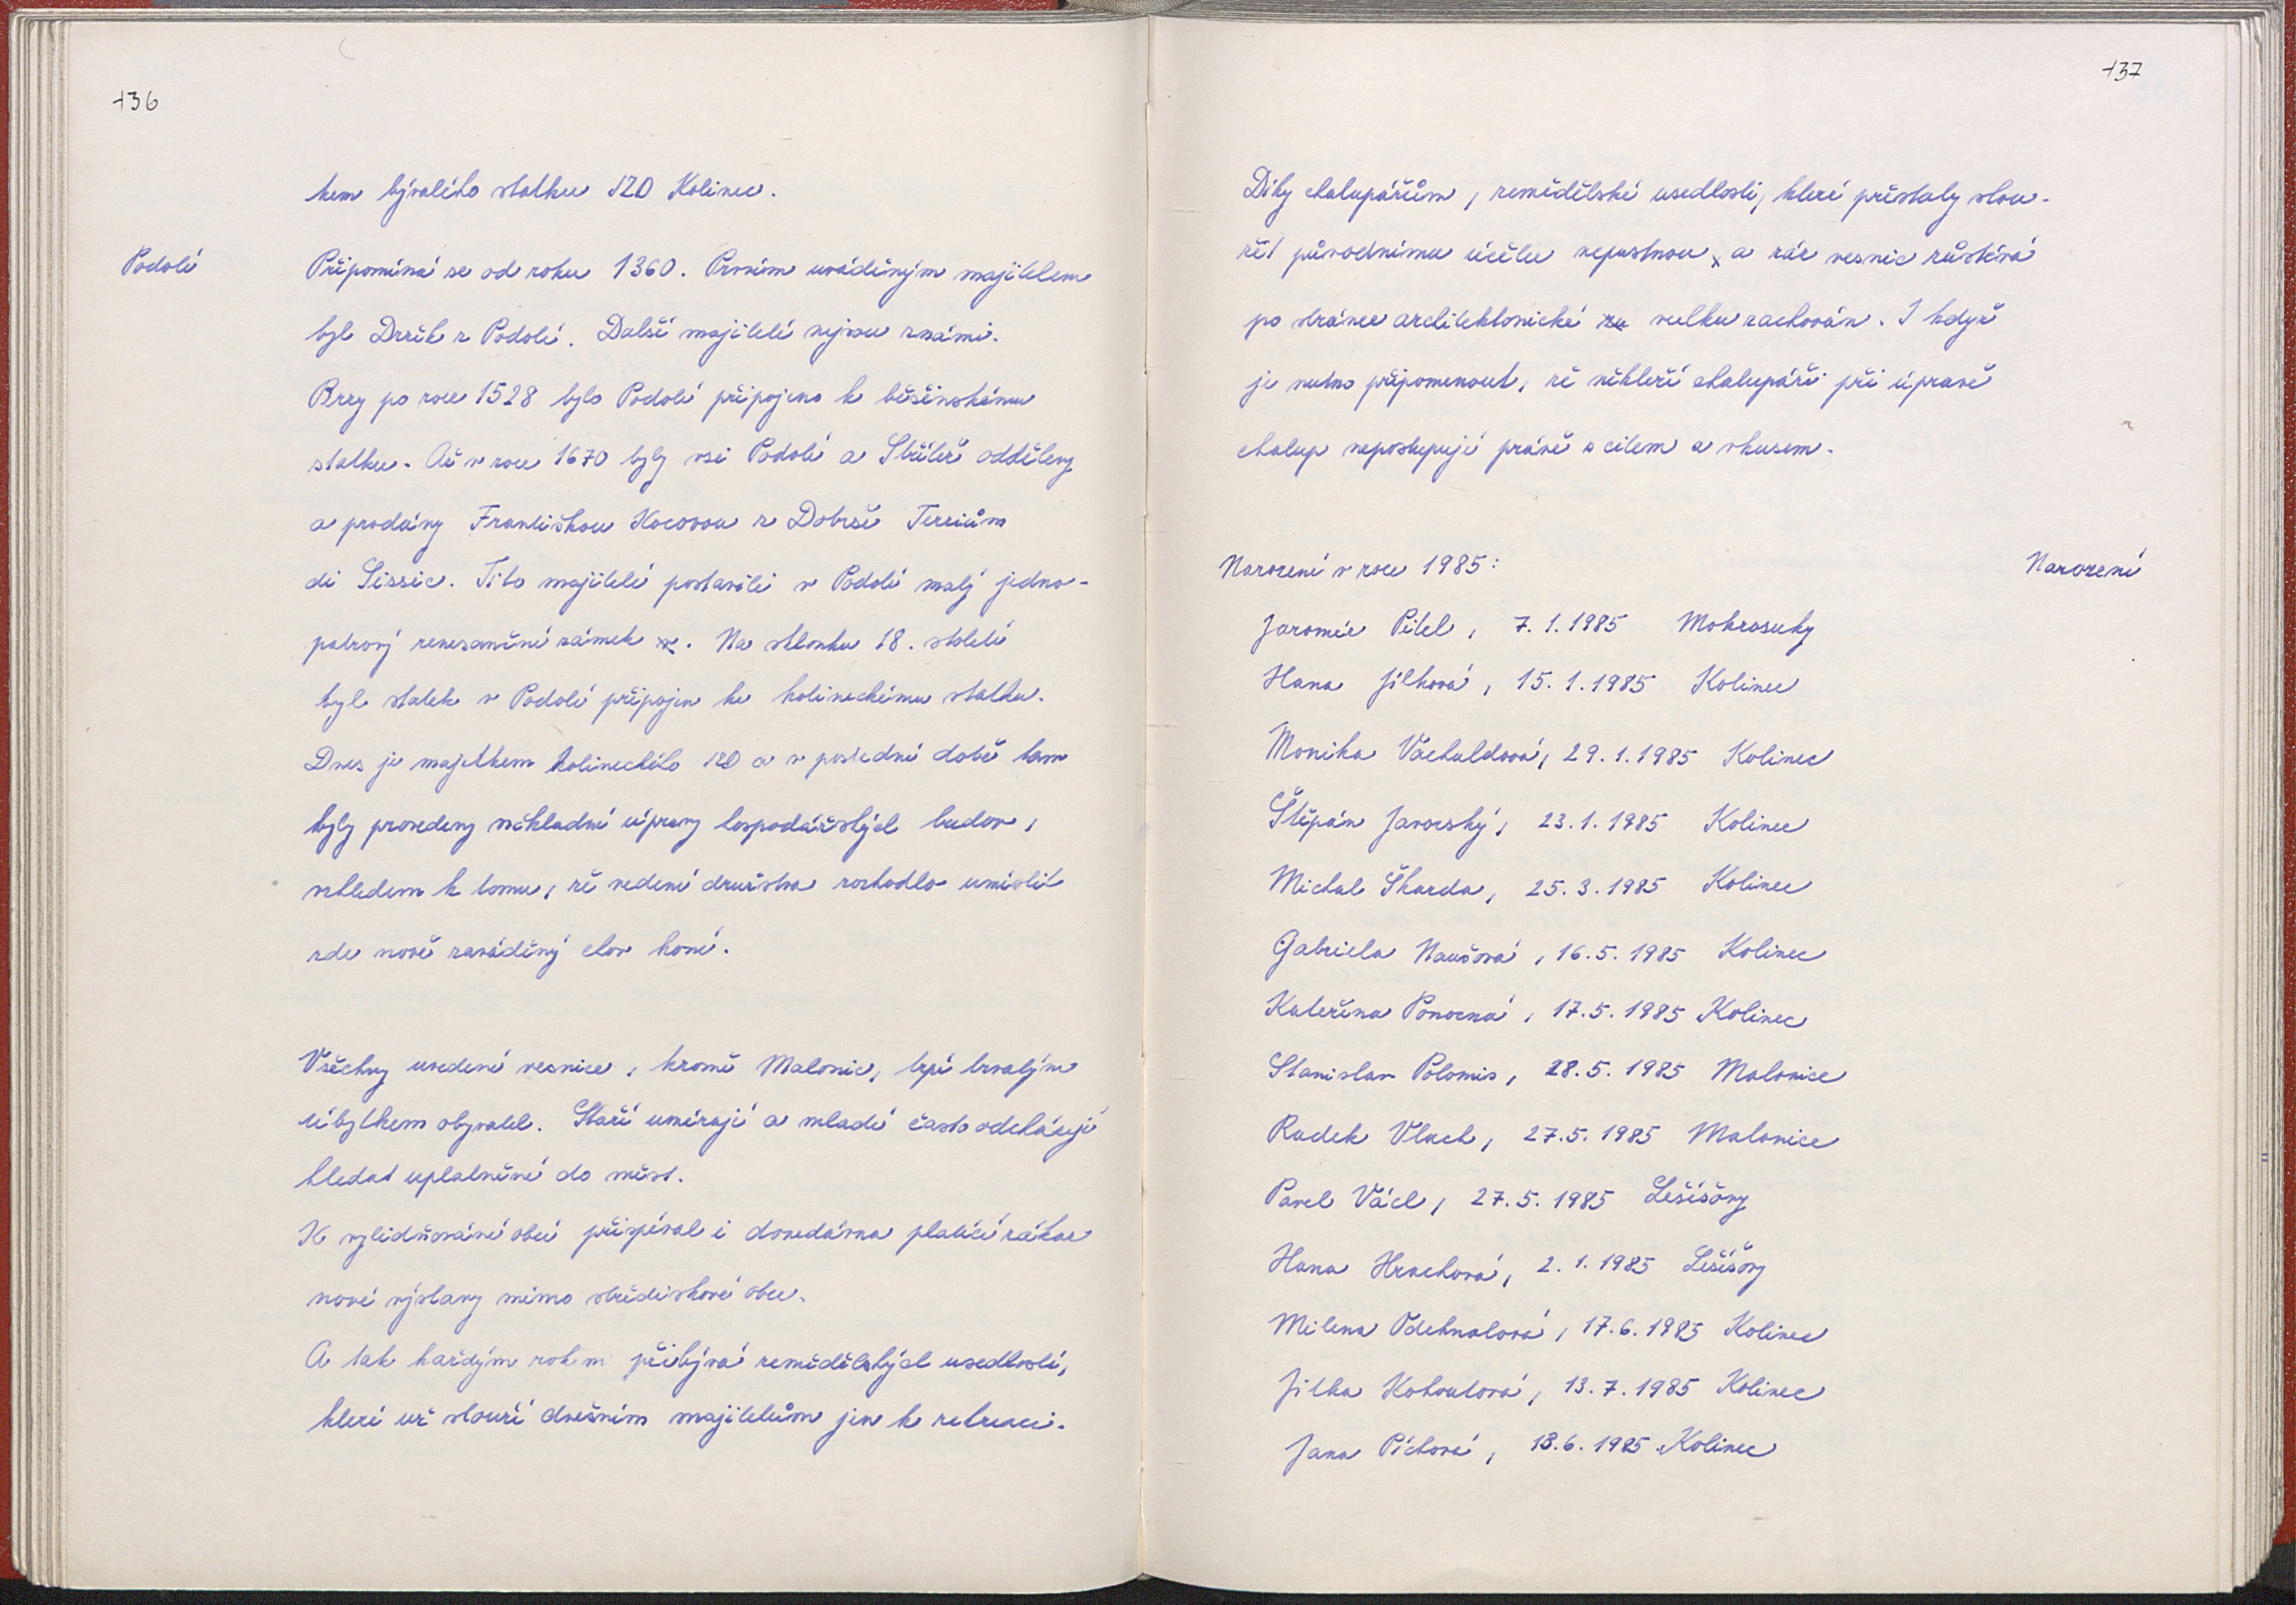 136
kem bývalého statku JZD Kolinec.
Podolí
Připomíná se od roku 1360. Prvním uváděným majitelem
byl Držík z Podolí. Další majitelé nejsou známi.
Brzy po roce 1528 bylo Podolí připojeno k běšinskému
statku. Až v roce 1670 byly vsi Podolí a Střítež odděleny
a prodány Františkou Kocovou z Dobrše Terziům
di Sissic. Tito majitelé postavili v Podolí malý jedno-
patrový renesanční zámek. Na sklonku 18. století
byl statek v Podolí připojen ke kolineckému statku.
Dnes je majetkem kolineckého JZD a v poslední době tam
byly provedeny nákladné úpravy hospodářských budov,
vzhledem k tomu, že vedení družstva rozhodlo umístit
zde nově zaváděný chov koní.
Všechny uvedené vesnice, kromě Malonic, trpí trvalým
úbytkem obyvatel. Staří umírají a mladí často odcházejí
hledat uplatnění do měst.
K vylidňování obcí přispíval i donedávna platící zákaz
nové výstavy mimo střediskové obce.
A tak každým rokem přibývá zemědělských usedlostí,
které už slouží dnešním majitelům jen k rekreaci.
137
Díky chalupářům, zemědělské usedlosti, které přestaly slou-
žit původnímu účelu nepustnou, a ráz vesnic zůstává
po stránce architektonické vcelku zachován. I když
je nutno připomenout, že někteří chalupáři při úpravě
chalup nepostupují právě s citem a vkusem.
Narození v roce 1985:
Narození
Jaromír Pitel, 7.1.1985 Mokrosuky
Hana Jílková, 15.1.1985 Kolinec
Monika Vachuldová, 29.1.1985 Kolinec
Štěpán Javorský, 23.1.1985 Kolinec
Michal Škarda, 25.3.1985 Kolinec
Gabriela Naušová, 16.5.1985 Kolinec
Kateřina Ponocná, 17.5.1985 Kolinec
Stanislav Polomis, 28.5.1985 Malonice
Radek Vlach, 27.5.1985 Malonice
Pavel Václ, 27.5.1985 Lešišovy
Hana Hrachová, 2.1.1985 Lešišovy
Milena Odehnalová, 17.6.1985 Kolinec
Jitka Kohoutová, 13.7.1985 Kolinec
Jana Píchová, 13.6.1985 Kolinec